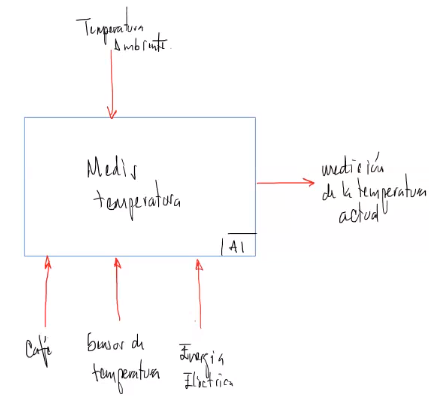 Temperatura
Ambiente.
Medir
temperatura
A1
medición
de la temperatura
actual
Café
Sensor de
temperatura
Energia
Eléctrica